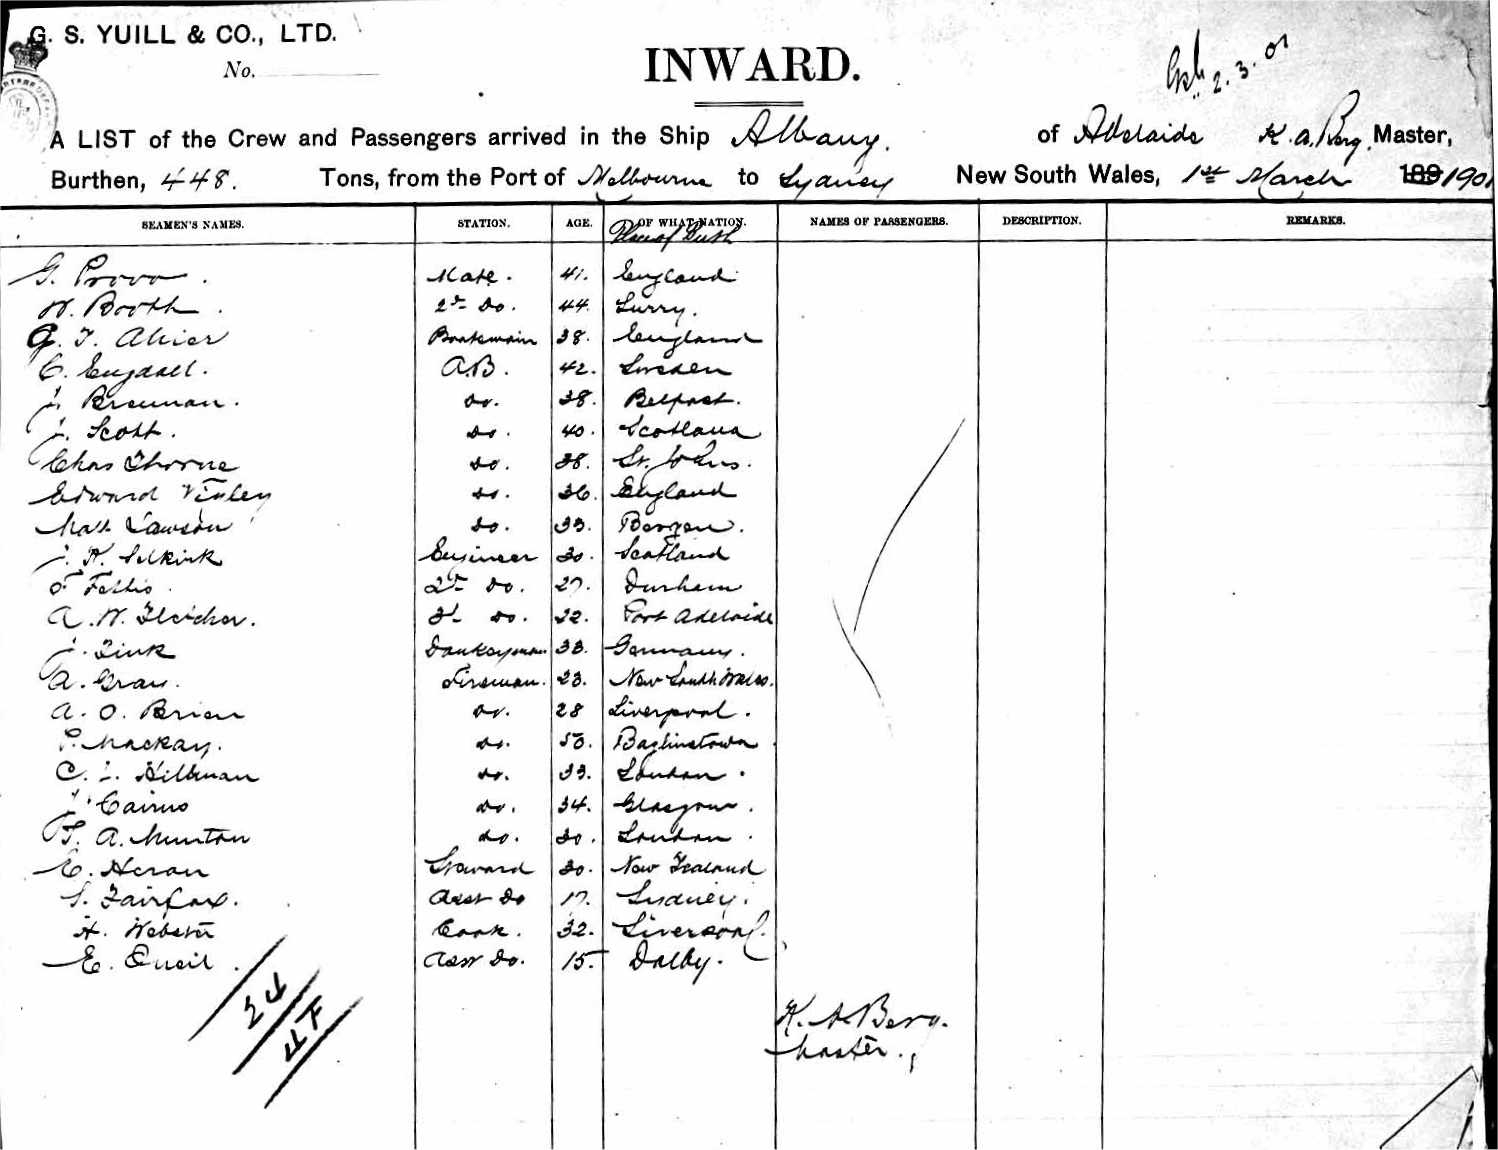 G. S. YUILL & CO., LTD.
No.
INWARD.
2. 3. 01
A LIST of the Crew and Passengers arrived in the Ship Albany. of Adelaide K. A. Berg. Master,
Burthen, 448. Tons, from the Port of Melbourne to Sydney New South Wales, 1st March 189 1901
SEAMEN'S NAMES. STATION. AGE. OF WHAT NATION. NAMES OF PASSENGERS. DESCRIPTION. REMARKS.
Place of Birth
G. Provo. Mate. 41. England
W. Booth. 2nd Do. 44. Surry.
G. T. Boatswain 38. England
C. Engdall. A.B. 42. Sweden
J. Brennan. Do. 38. Belfast.
J. Scott. Do. 40. Scotland
Chas Thorne Do. 38. St. Johns.
Edward Finley Do. 36. England
Matt Lawson Do. 33. Bergen.
J. H. Selkirk Engineer 30. Scotland
2nd Do. 27. Durham
A. W. Fletcher. 3d Do. 22. Port Adelaide
J. Zink Donkeyman 33. Germany.
A. Gray. Fireman. 23. New South Wales.
A. O. Brien Do. 28 Liverpool.
P. Mackay. Do. 50.
C. L. Hillman Do. 33. London.
J. Cairns Do. 34. Glasgow.
F. A. Munton Do. 30. London.
E. Heron Steward 30. New Zealand
S. Fairfax. Asst Do 17. Sydney.
H. Webster Cook. 32. Liverpool.
E. Queil. Asst Do. 15. Dalby.
24
K. A. Berg.
Master.